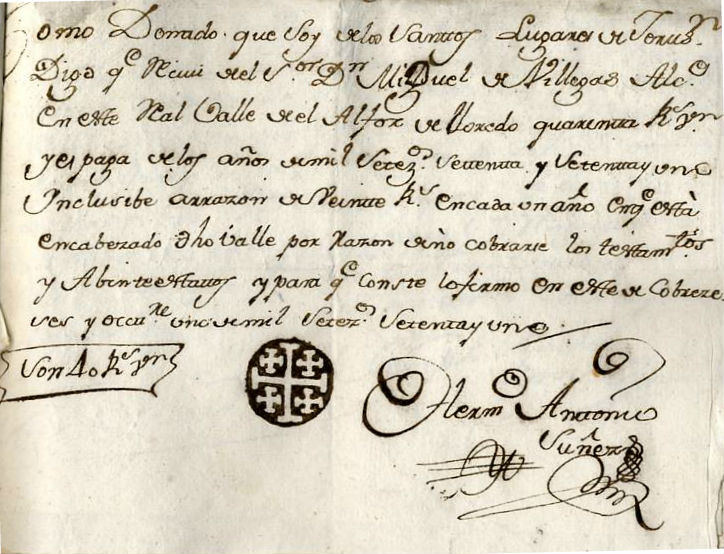 omo Donado que soy delos Santtos Lugares de Jerusn
Digo qe Recivi del Sor Dn Miguel de Villegas Alce
En este Real Valle de el Alfoz de lloredo quarenta Rs vn
y es paga de los años de mil Setezos Settenta y Setenta y uno
Ynclusibe arrazon de Veinte Rs en cada un año en qe està
encabezado dho Valle por Razon de no cobrarse los testamtos
y Abintestattos y para qe Conste lo firmo en este de Cobreze
ses y Occure uno de mil Setezos Setenta y uno
Son 40 Rs vn
Hermo Antonio
Suñer